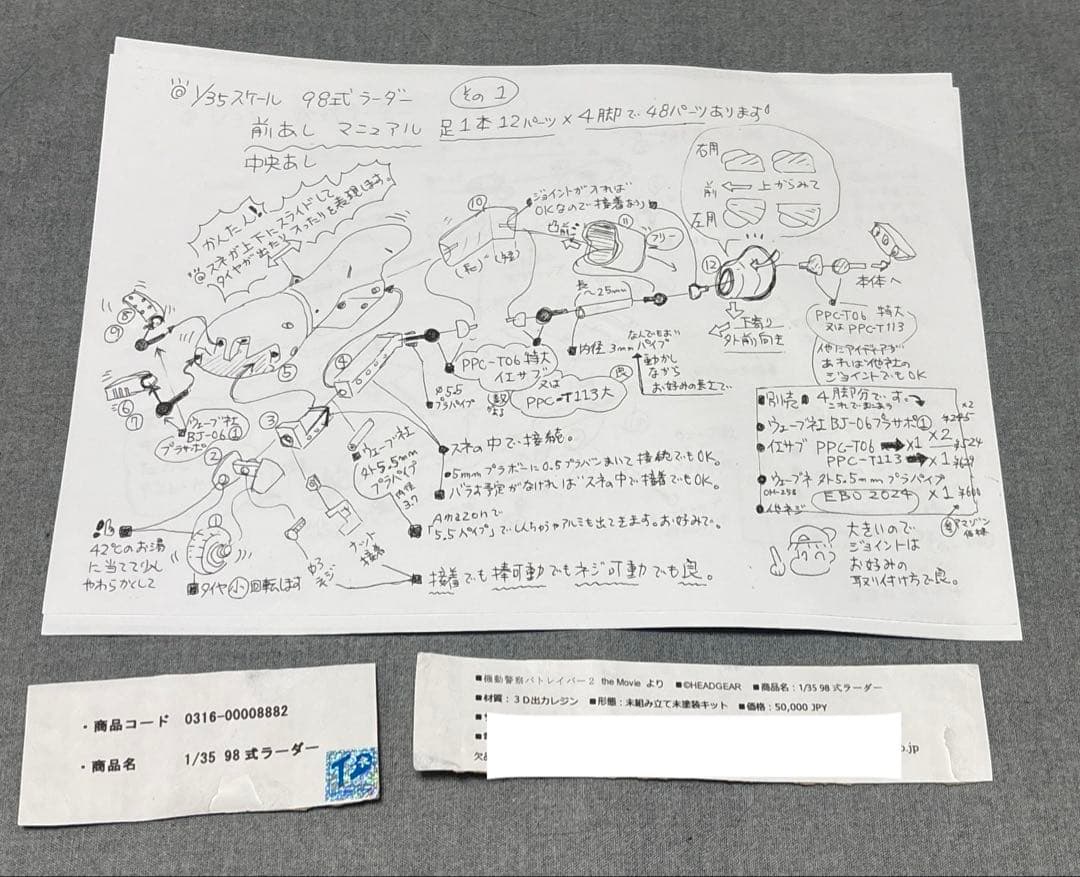 1/35スケール 98式ラーダー その1
前あし マニュアル 足1本12パーツ×4脚で48パーツあります!
中央あし
かんたん!!
スネが上下にスライドして
タイヤが出たり入ったりを表現します。
ジョイントが入れば
OKなので接着より
右用
前 上からみて
左用
⑩
(長) (短)
凸前
⑪
フリー
⑫
下寄り
外前向き
本体へ
PPC-T06 特大
又はPPC-T113
他にアイディアが
あれば他社の
ジョイントでもOK
長〜25mm
内径3mm
なんでもよい
パイプ
動かし
ながら
お好みの長さで…
⑧
⑨
⑥
⑦
⑤
④
③
②
①
ウェーブ社
BJ-06①
プラサポ
PPC-T06 特大
イエサブ
又は
PPC-T113大
良
5.5
プラパイプ
ウェーブ社
外5.5mm
プラパイプ
内径
3.7
スネの中で接続。
5mmプラボーに0.5プラバンまいて接続でもOK。
バラす予定がなければスネの中で接着でもOK。
Amazonで
「5.5パイプ」でしんちゅやアルミも出てきます。お好みで。
42℃のお湯
に当てて少し
やわらかくして
タイヤ小回転します
ナット
接着
接着でも棒可動でもネジ可動でも良。
別売 4脚分です。
ウェーブ社 BJ-06プラサポ① ×2
イエサブ PPC-T06 ➡×1 ×2
PPC-T113➡×1
ウェーブ 外5.5mmプラパイプ
OH-258
EBO 2024 ×1
他ネジ
アマゾン
価格
大きいので
ジョイントは
お好みの
取り付け方で良。
・商品コード 0316-00008882
・商品名 1/35 98式ラーダー
■機動警察パトレイバー2 the Movie より ■©HEADGEAR ■商品名:1/35 98式ラーダー
■材質:3D出力レジン ■形態:未組み立て未塗装キット ■価格:50,000 JPY
欠
o.jp